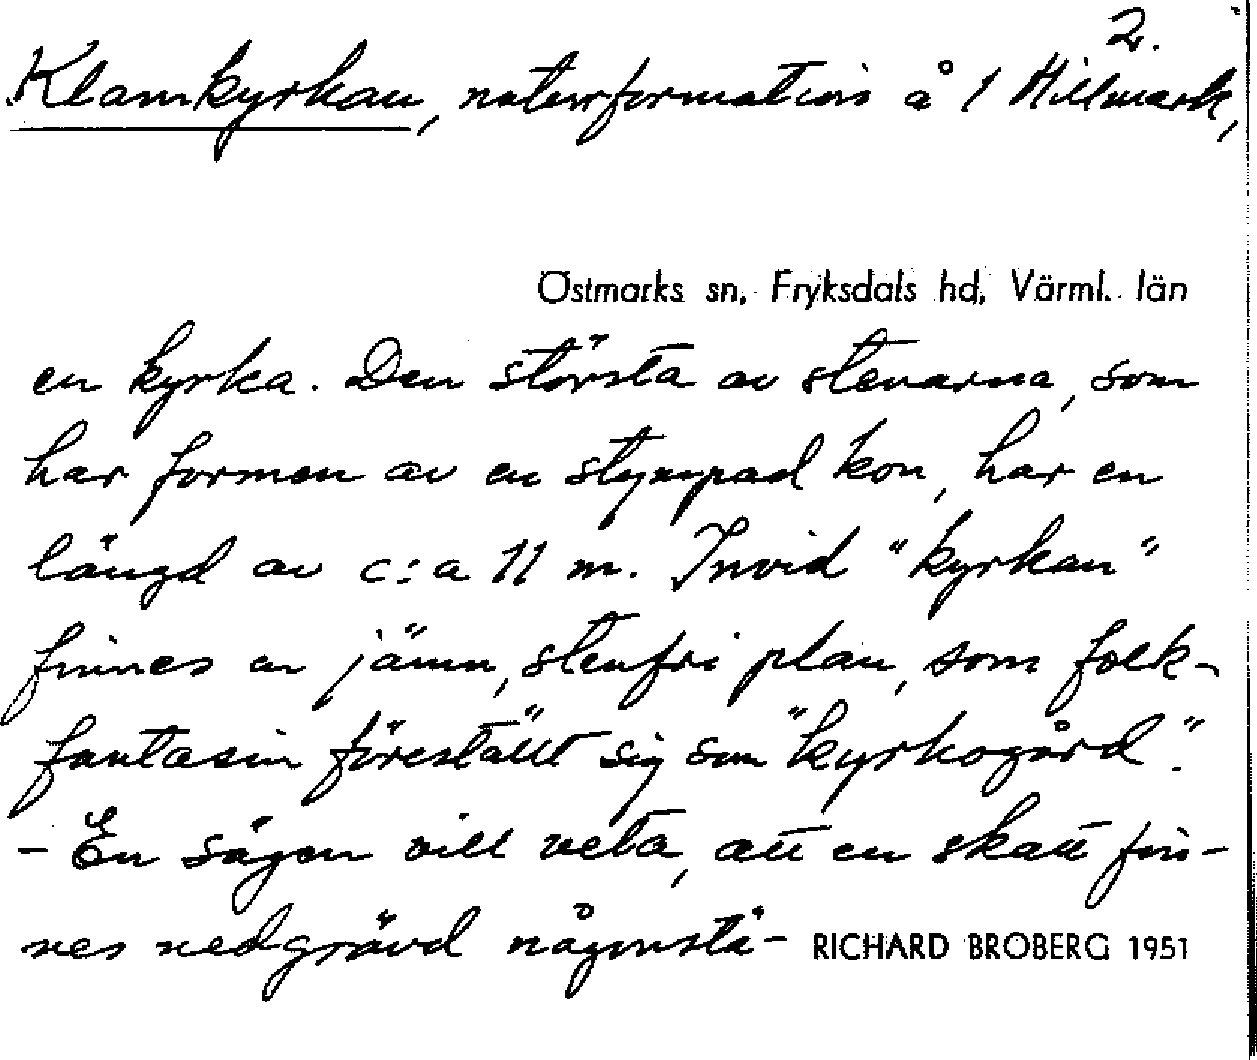 2.
Klamkyrkan, naturformation å 1 Hillmark,
Östmarks sn, Fryksdals hd, Värml. län
en kyrka. Den största av stenarna, som
har formen av en stympad kon, har en
längd av c:a 11 m. Invid "kyrkan"
finnes en jämn, stenfri plan, som folk-
fantasin föreställt sig som "kyrkogård".
- En sägen vill veta, att en skatt fin-
nes nedgrävd någonstä- RICHARD BROBERG 1951